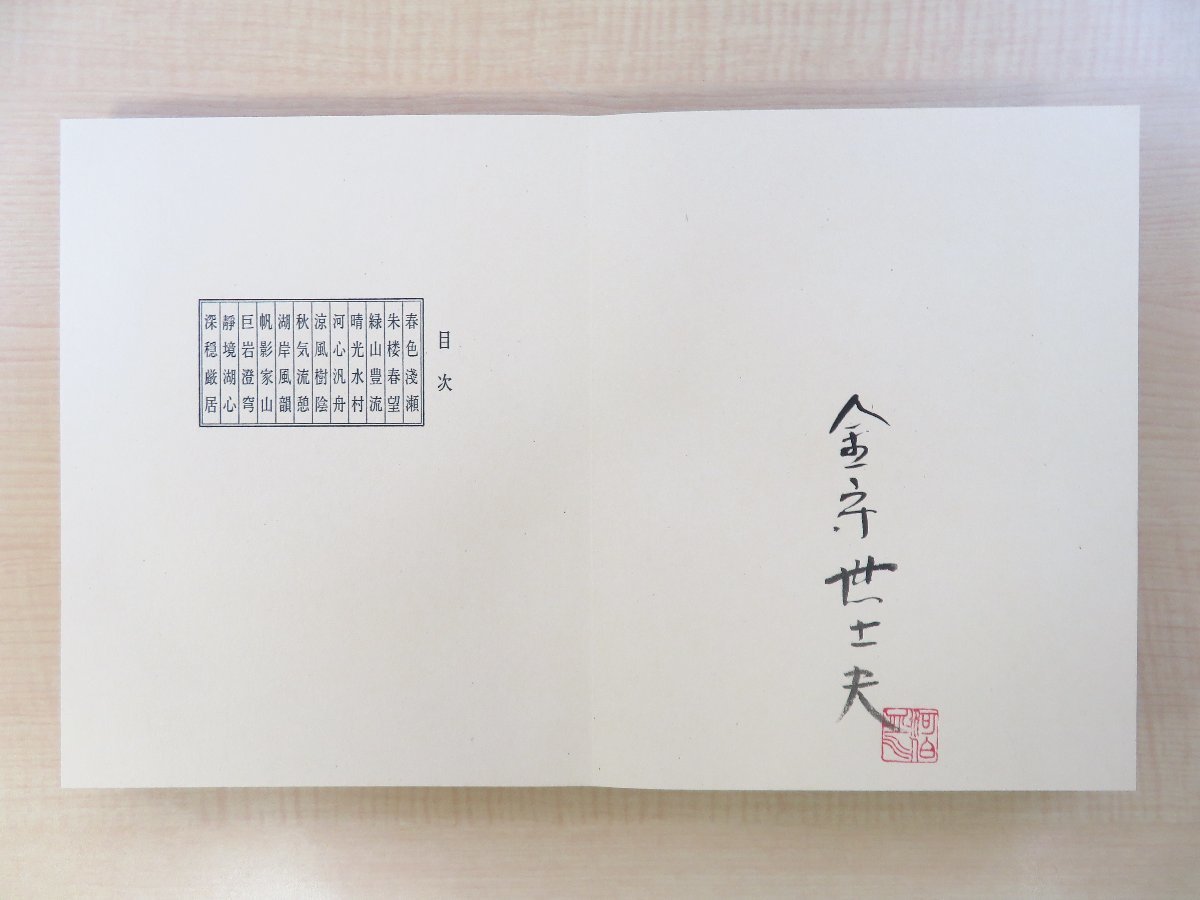 金守世士夫
河伯
目次
春色淺瀬
朱楼春望
緑山豊流
晴光水村
河心汎舟
涼風樹陰
秋気流憩
湖岸風韻
帆影家山
巨岩澄穹
靜境湖心
深穏厳居